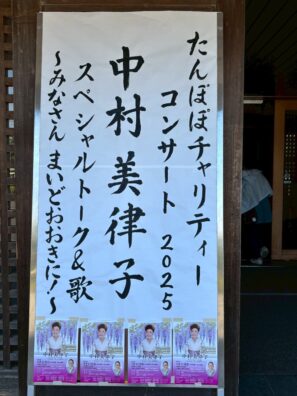 たんぽぽチャリティー
コンサート 2025
中村 美律子
スペシャルトーク&歌
～みなさん まいどおおきに！～